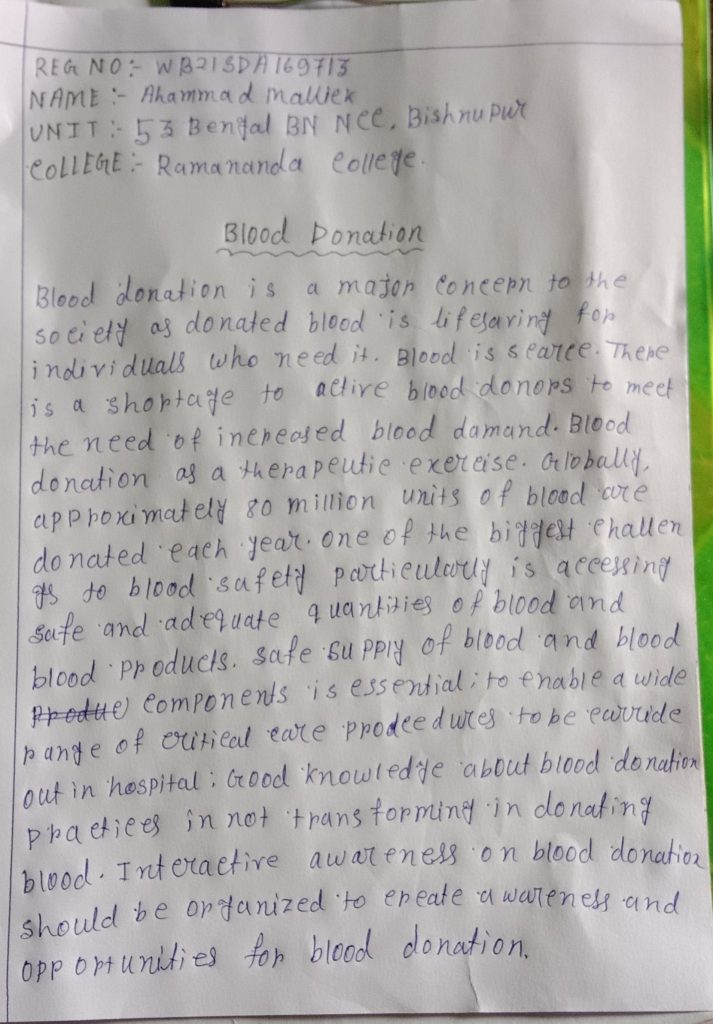 REG NO:- WB21SDA169713
NAME :- Ahammad Mallick
UNIT :- 53 Bengal BN NCC, Bishnupur
COLLEGE :- Ramananda College.
Blood Donation
Blood donation is a major concern to the
society as donated blood is lifesaving for
individuals who need it. Blood is scarce. There
is a shortage to active blood donors to meet
the need of increased blood damand. Blood
donation as a therapeutic exercise. Globally,
approximately 80 million units of blood are
donated each year. one of the biggest challen
gs to blood safety particularly is accessing
safe and adequate quantities of blood and
blood products. safe supply of blood and blood
components is essential; to enable a wide
range of critical care proceedures to be carride
out in hospital; Good knowledge about blood donation
practices in not transforming in donating
blood. Interactive awareness on blood donation
should be organized to create awareness and
opportunities for blood donation.